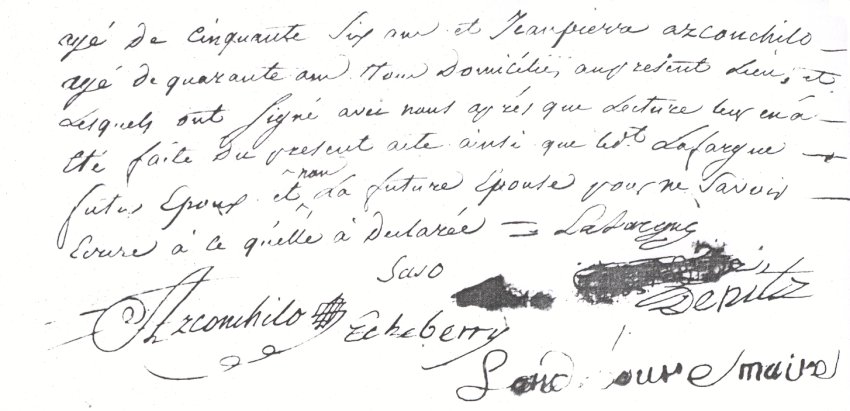 agé de Cinquante Six ans et Jeanpierre azconchilo
agé de quarante ans tous Domiciliés aupresent Lieu, et
Lesquels ont Signé avec nous après que Lecture leur en à
Eté faite Du present acte ainsi que ledt. Lafargue
futur Epoux et non La future Epouse pour ne Savoir
Ecrire à ce qu'éllé à Declarée = Lafargue
Saso
Azconchilo Etcheberry
maire